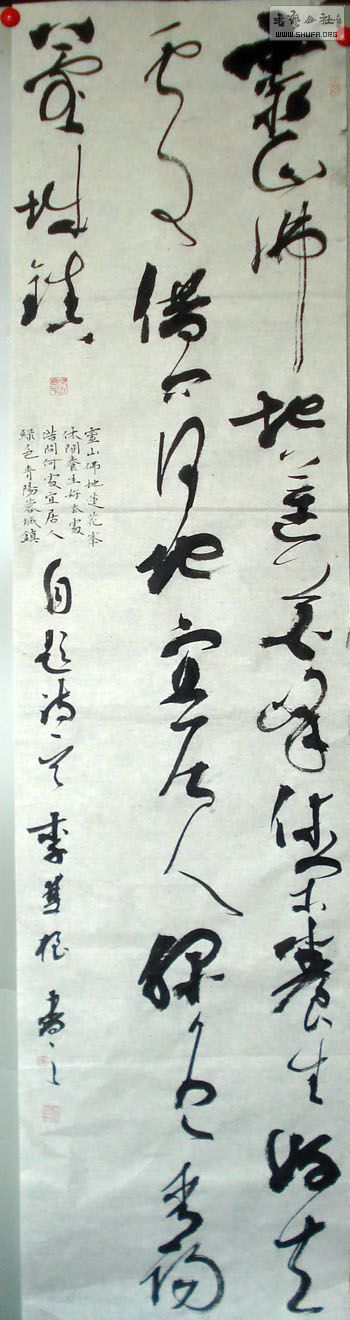 书艺公社
WWW.SHUFA.ORG
靈山佛地蓮花峯休閒養生好去
處借问何地宜居人綠色青陽
蓉城鎮
靈山佛地蓮花峯
休閒養生好去處
借問何處宜居人
綠色青陽蓉城鎮
自题诗一 李 根 書之